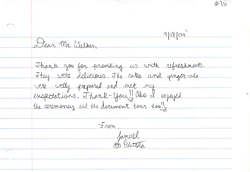 Dear Mr Walker,
Thank you for providing us with refreshments.
They were delicious. The cake and ginger-ale
were well prepared and met my
expectations. Thank-You!! Also I enjoyed
the ceremony and the document tour too!!
From